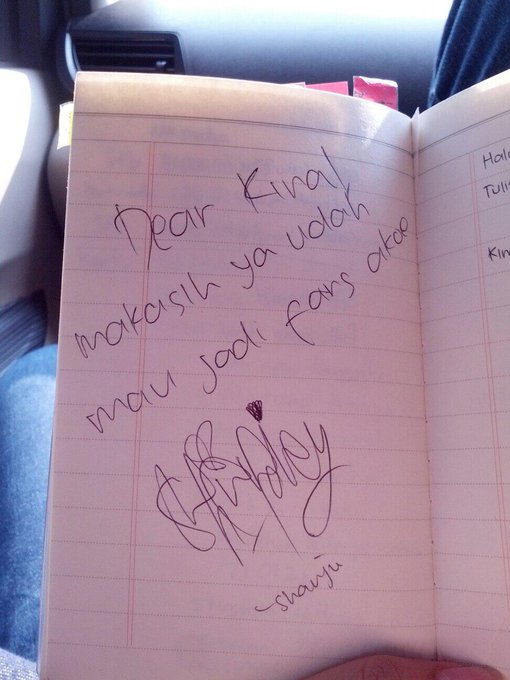 Dear Kinal
makasih ya udah
mau jadi fans akoe
~shanju
Halo
Tulis
Kin